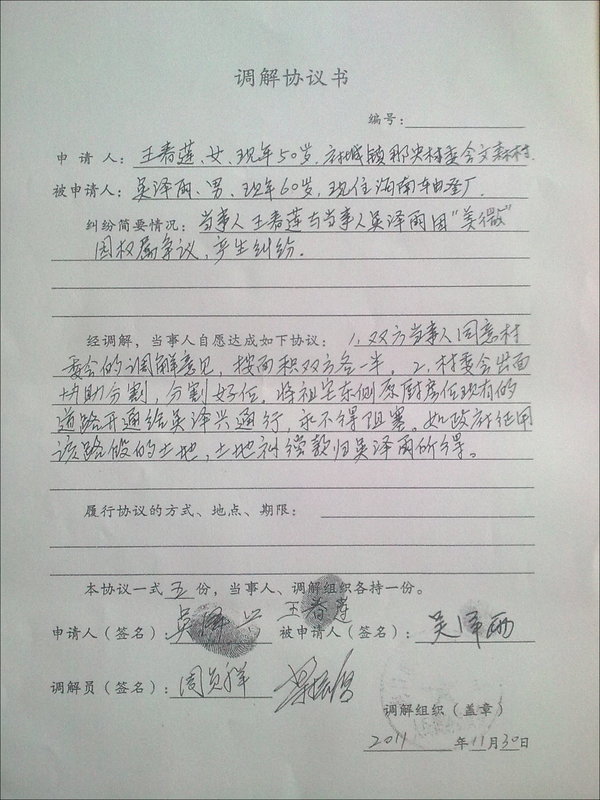 调解协议书
编号：
申请人：王春莲、女、现年50岁，府城镇那央村委会文森村.
被申请人：吴泽雨、男、现年60岁，现住海南轴承厂.
纠纷简要情况：当事人王春莲与当事人吴泽雨因“美徽”
园权属争议，产生纠纷.
经调解，当事人自愿达成如下协议：1，双方当事人同意村
委会的调解意见，按面积双方各一半。2，村委会出面
协助分割，分割好后，将祖宅东侧原厨房位现有的
道路开通给吴泽兴通行，永不得阻塞。如政府征用
该路段的土地，土地补偿款归吴泽雨所得。
履行协议的方式、地点、期限：
本协议一式五份，当事人、调解组织各持一份。
申请人（签名）：吴泽兴 王春莲 被申请人（签名）：吴泽雨
调解员（签名）：周
调解组织（盖章）
2011年11月30日